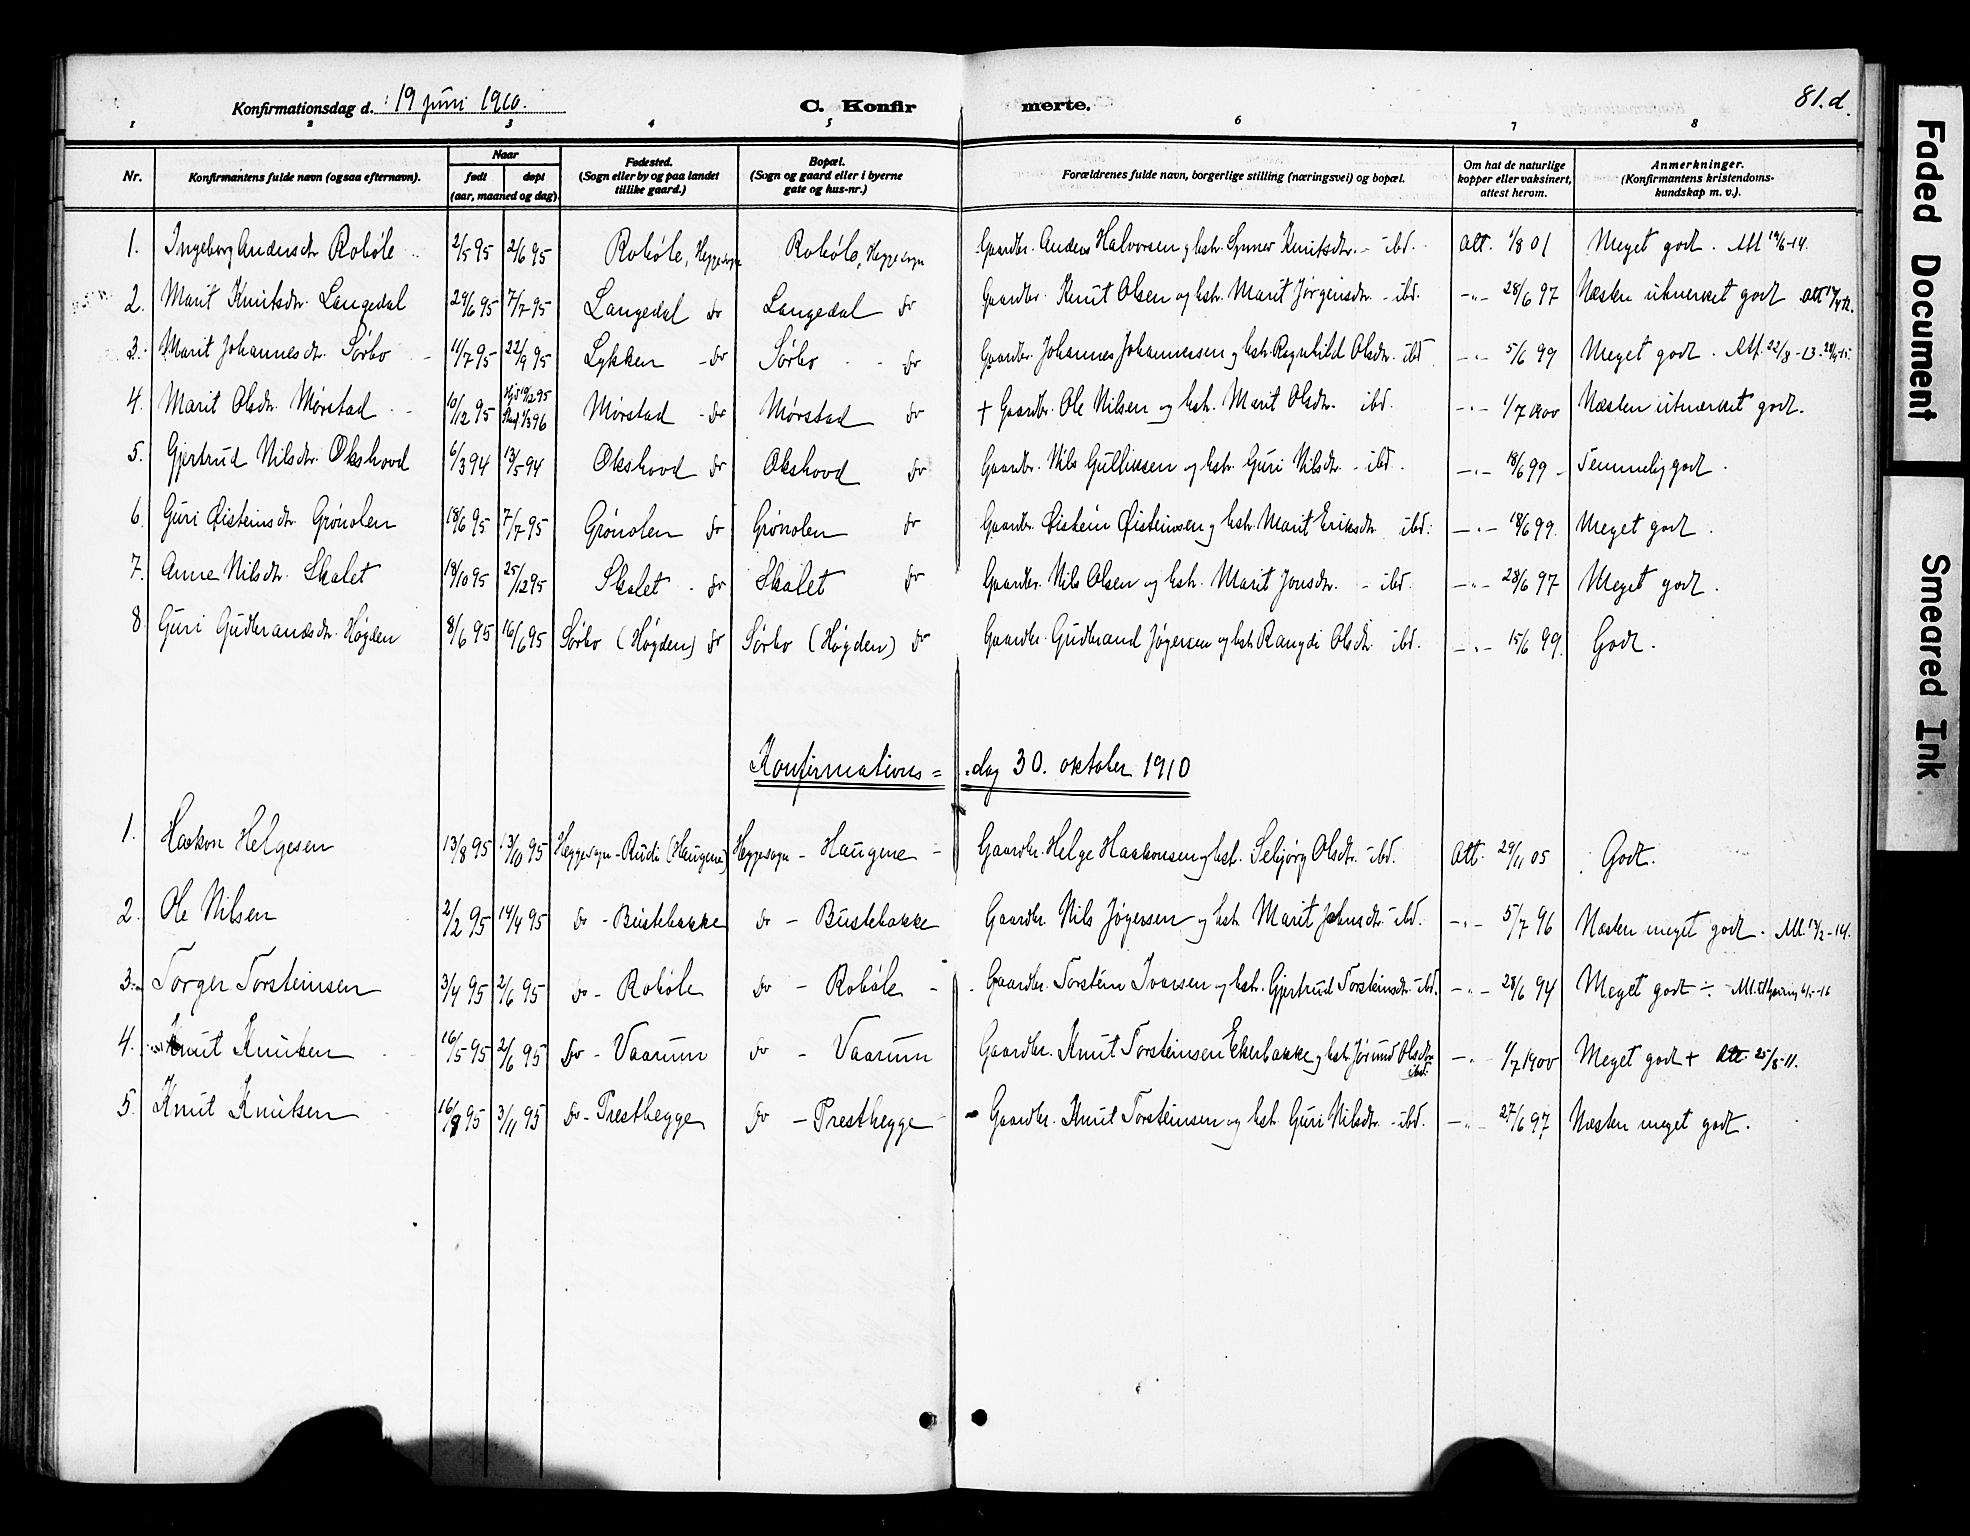 Konfirmationsdag d. 19 juni 1910.
C. Konfirmerte.
81.d.
1 2 3 4 5 6 7 8
Nr. Konfirmantens fulde navn (ogsaa efternavn). Naar født døpt (aar, maaned og dag). Fødested. (Sogn eller by og paa landet tillike gaard.) Bopæl. (Sogn og gaard eller i byerne gate og hus-nr.) Forældrenes fulde navn, borgerlige stilling (næringsvei) og bopæl. Om hat de naturlige kopper eller vaksinert, attest herom. Anmerkninger. (Konfirmantens kristendomskundskap m. v.).
1. Ingeborg Andersdtr. Robøle 2/5 95 2/6 95 Robøle, Heggesogn Robøle, Heggesogn Gaardbr. Anders Halvorsen og hstr. Synnøv Knutsdtr. - ibd. Att. 1/8 01 Meget godt. Att 14/6-14.
2. Marit Knutsdtr. Langedal 29/6 95 7/7 95 Langedal do Langedal do Gaardbr. Knut Olsen og hstr. Marit Jørgensdtr. - ibd. -"- 28/6 97 Næsten utmerket godt Att
3. Marit Johannesdtr. Sørbo 11/7 95 22/9 95 Lykken - do Sørbo - do Gaardbr. Johannes Johannessen og hstr. Ragnhild Olsdtr. ibd -"- 5/6 99 Meget godt. Att. 22/8-13.
4. Marit Olsdtr. Mørstad 10/12 95 Hjd 14/12 95 Stad. 1/3 96 Mørstad - do Mørstad do + Gaardbr. Ole Nilsen og hstr. Marit Olsdtr. ibd. -"- 1/7 1900 Næsten utmerket godt.
5. Gjertrud Nilsdtr. Okshovd 6/3 94 13/5 94 Okshovd do Okshovd do Gaardbr. Nils Gulliksen og hstr. Guri Nilsdtr. - ibd. -"- 18/6 99 - Temmelig godt.
6. Guri Øisteinsdtr. Grønolen 18/6 95 7/7 95 Grønolen do Grønolen do Gaardbr. Øistein Øisteinsen og hstr. Marit Eriksdtr. ibd. -"- 18/6 99. Meget godt.
7. Anne Nilsdtr. Skalet 18/10 95 25/12 95 Skalet - do Skalet do Gaardbr. Nils Olsen og hstr. Marit Jonsdtr. - ibd. -"- 28/6 97 Meget godt.
8. Guri Gudbrandsdtr. Høgden 8/6 95 16/6 95 Sørbo (Høgden) do Sørbo (Høgden) do Gaardbr. Gudbrand Jøgersen og hstr. Rangdi Olsdtr. ibd. -"- 15/6 99. Godt.
Konfirmations= dag 30. oktober 1910
1. Haakon Helgesen 13/8 95 13/10 95 Heggesogn - Rudi (Haugene) Heggesogn - Haugene - Gaardbr. Helge Haakonsen og hstr. Sebjørg Olsdtr. - ibd. Att. 29/11 05 Godt.
2. Ole Nilsen 2/2 95 14/4 95 do - Bustebakke do - Bustebakke Gaardbr. Nils Jøgersen og hstr. Marit Johnsdtr. - ibd. -"- 5/7 96 Næsten meget godt. Att. 14/2-14.
3. Torger Torsteinsen 3/4 95 2/6 95 do - Robøle do - Robøle - Gaardbr. Torstein Ivarsen og hstr. Gjertrud Torsteinsdtr. - ibd. -"- 28/6 94 Meget godt ÷
4. Knut Knutsen 16/5 95 2/6 95 do - Vaarum do - Vaarum Gaardbr. Knut Torsteinsen Ekerbakke og hstr. Jørund Olsdtr. ibd. -"- 1/7 1900 Meget godt + Att. 25/8-11.
5. Knut Knutsen 16/9 95 3/11 95 do - Presthegge do - Presthegge - Gaardbr. Knut Torsteinsen og hstr. Guri Nilsdtr. - ibd. -"- 27/6 97 Næsten meget godt.
Faded Document
Smeared Ink